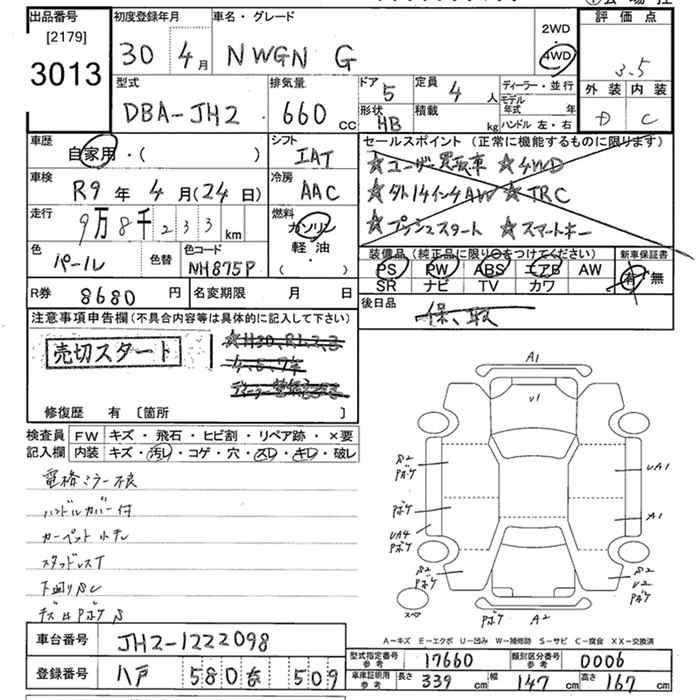 出品番号
[2179]
3013
初度登録年月
30 4月
車名・グレード
NWGN G
2WD
4WD
評価点
3.5
外装 内装
D C
型式
DBA-JH2
排気量
660 cc
ドア
5
形状
HB
定員
4 人
積載
kg
ディーラー・並行
モデル年式 年
ハンドル 左・右
車歴
自家用・( )
シフト
IAT
車検
R9年 4月(24日)
冷房
AAC
走行
9万8千233km
燃料
ガソリン
軽・油
( )
色
パール
色替
色コード
NH875P
セールスポイント (正常に機能するものに限ります)
☆ユーザー買取車 ☆4WD
☆タト14インチAW ☆TRC
☆プッシュスタート ☆スマートキー
装備品 (純正品に限り○をつけてください)
PS PW ABS エアB AW
SR ナビ TV カワ
新車保証書
有 無
R券 8680円
名変期限 月 日
後日品
保、取
注意事項申告欄(不具合内容等は具体的に記入して下さい)
売切スタート
修復歴 有 〔箇所 〕
検査員
記入欄
FW キズ・飛石・ヒビ割・リペア跡・×要
内装 キズ・汚レ・コゲ・穴・スレ・キレ・破レ
電格ミラー不良
ハンドルカバー付
カーペット小キレ
スタッドレスT
下回りS
A1
U1
S2
Pボケ
UA1
Pボケ
UA4
Pボケ
A1
S2
Pボケ
S2
U2
Pボケ
スペア
Pボケ
A2
A-キズ E-エクボ U-凹み W-補修跡 S-サビ C-腐食 XX-交換済
車台番号 JH2-1222098
登録番号 八戸 580 を 509
型式指定番号 参考 17660
類別区分番号 参考 0006
車庫証明用 参考 長さ 339cm 幅 147cm 高さ 167cm